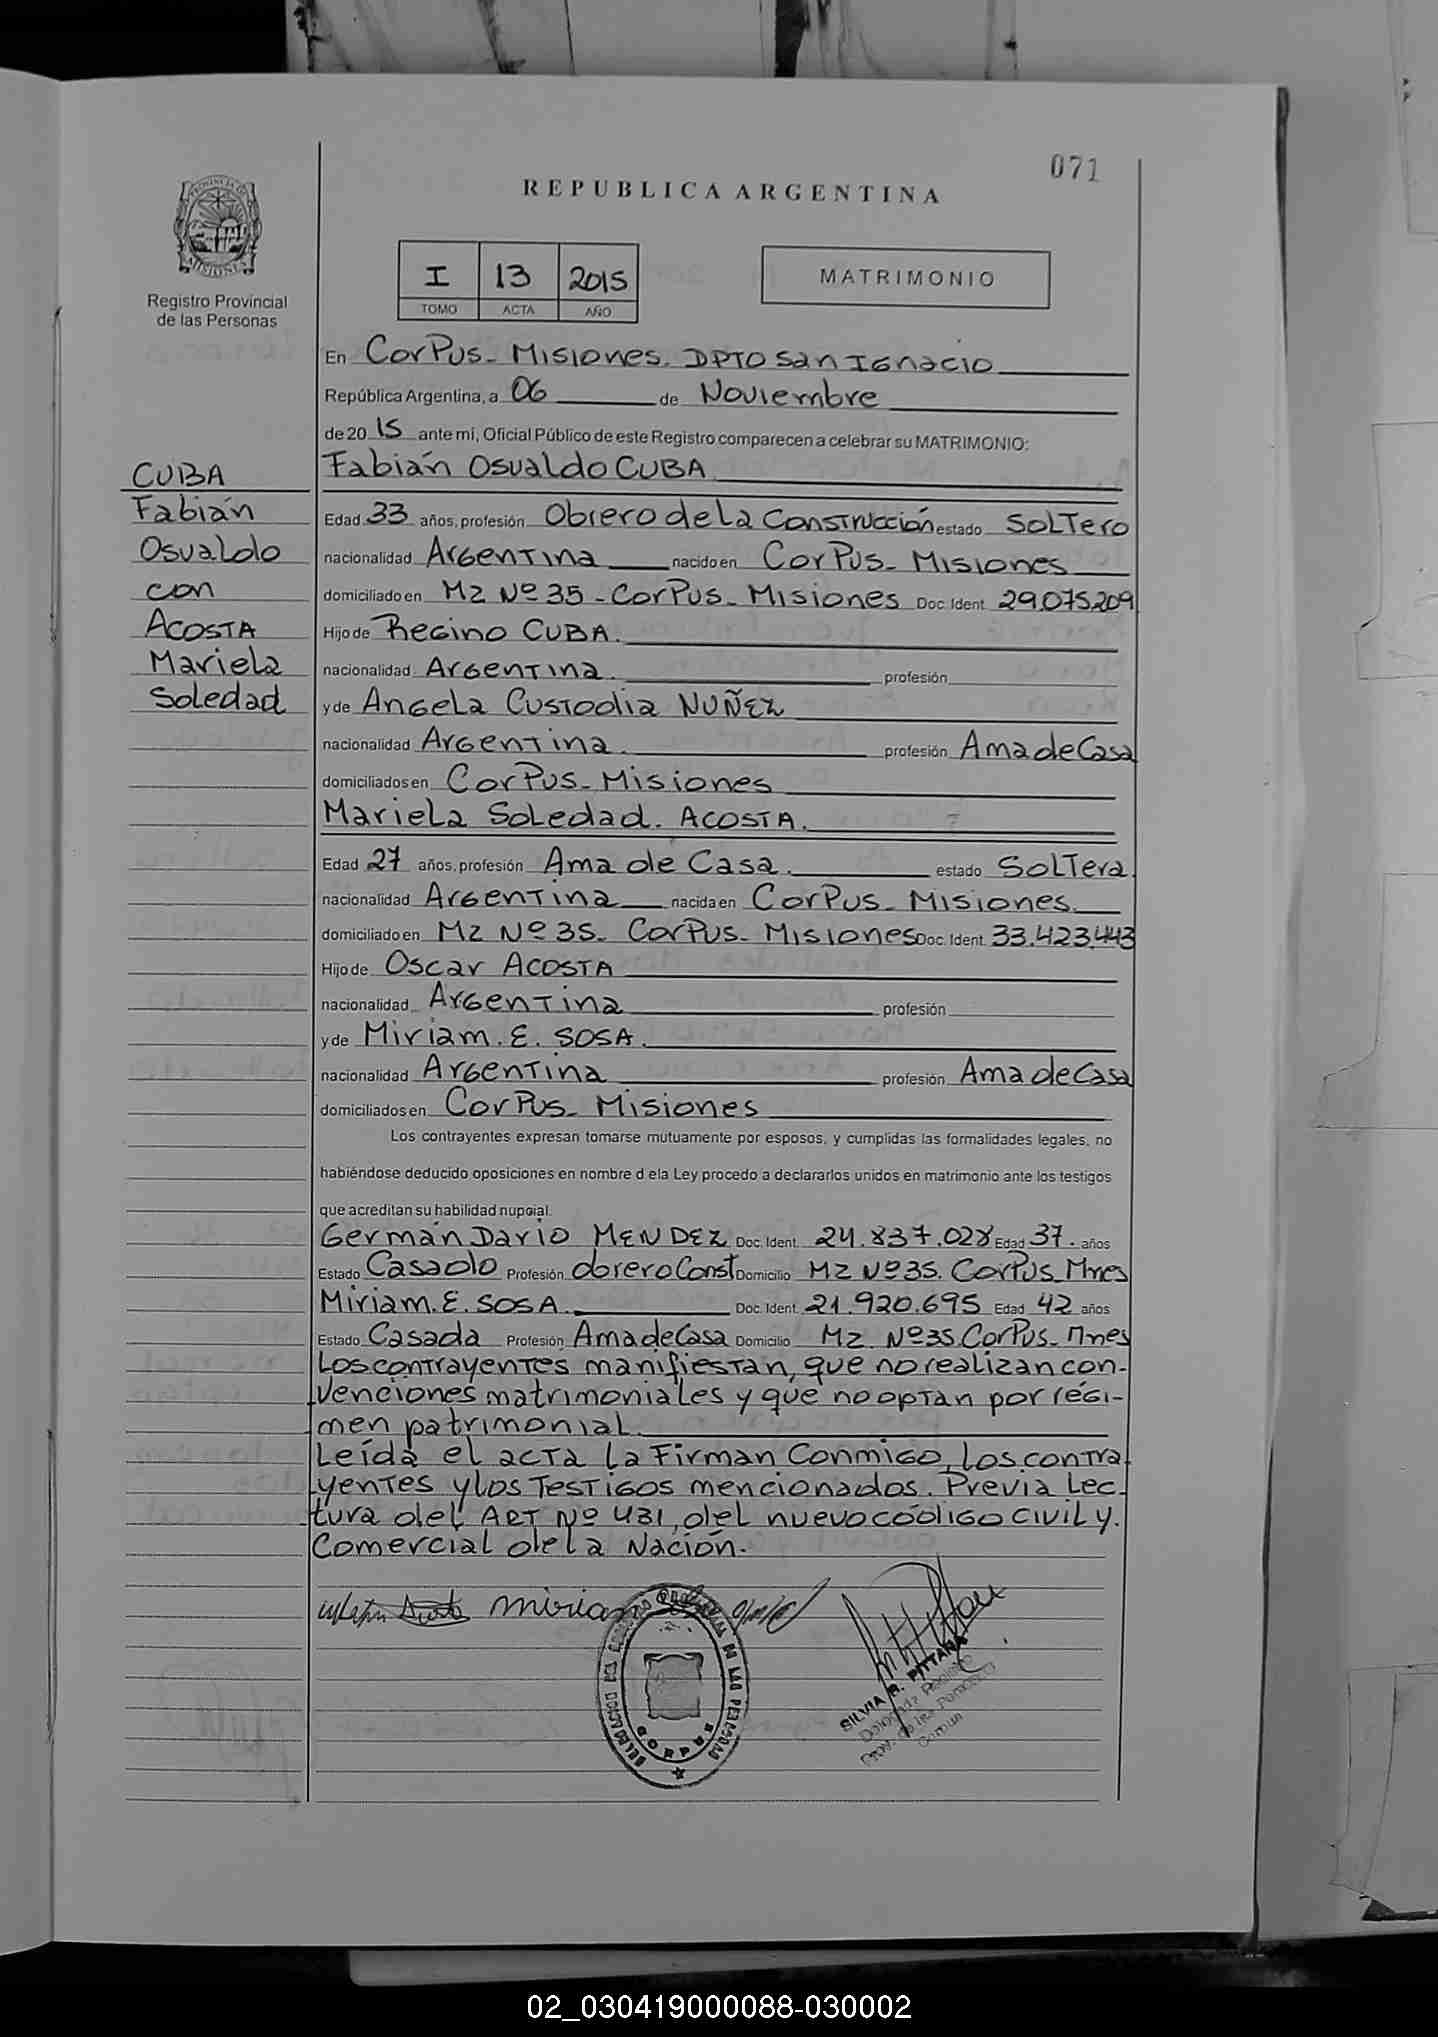 071
REPUBLICA ARGENTINA
PROVINCIA DE
MISIONES
Registro Provincial
de las Personas
I 13 2015
TOMO ACTA AÑO
MATRIMONIO
En Corpus- Misiones. DPTO San Ignacio
República Argentina, a 06 de Noviembre
de 20 15 ante mí, Oficial Público de este Registro comparecen a celebrar su MATRIMONIO:
Fabián Osvaldo CUBA
CUBA
Fabián
Osvaldo
con
ACOSTA
Mariela
Soledad
Edad 33 años, profesión Obrero de la Construcción estado Soltero
nacionalidad Argentina nacido en Corpus- Misiones
domiciliado en Mz Nº 35 - Corpus- Misiones Doc. Ident. 29.075.209
Hijo de Regino CUBA.
nacionalidad Argentina. profesión
y de Angela Custodia NUÑEZ
nacionalidad Argentina. profesión Ama de Casa
domiciliados en Corpus- Misiones
Mariela Soledad. ACOSTA.
Edad 27 años, profesión Ama de Casa. estado Soltera.
nacionalidad Argentina nacida en Corpus- Misiones.
domiciliado en Mz Nº 35. Corpus- Misiones Doc. Ident. 33.423.443
Hijo de Oscar ACOSTA
nacionalidad Argentina profesión
y de Miriam. E. SOSA.
nacionalidad Argentina profesión Ama de Casa
domiciliados en Corpus- Misiones
Los contrayentes expresan tomarse mutuamente por esposos, y cumplidas las formalidades legales, no
habiéndose deducido oposiciones en nombre d ela Ley procedo a declararlos unidos en matrimonio ante los testigos
que acreditan su habilidad nupcial.
Germán Dario MENDEZ Doc. Ident. 24.837.028 Edad 37. años
Estado Casado Profesión obrero Const Domicilio Mz Nº 35. Corpus- Mnes
Miriam. E. SOSA. Doc. Ident. 21.920.695 Edad 42 años
Estado Casada Profesión Ama de Casa Domicilio Mz. Nº 35 Corpus- Mnes
Los contrayentes manifiestan, que no realizan con-
venciones matrimoniales y que no optan por régi-
men patrimonial.
Leída el acta la Firman Conmigo, los contra
yentes y los Testigos mencionados. Previa Lec-
tura del ART Nº 431, del nuevo código civil y.
Comercial de la Nación.
Miriam
CORPUS
SILVIA R. PITTANA
Delegada Registro
Prov. de las Personas
Corpus
02_030419000088-030002